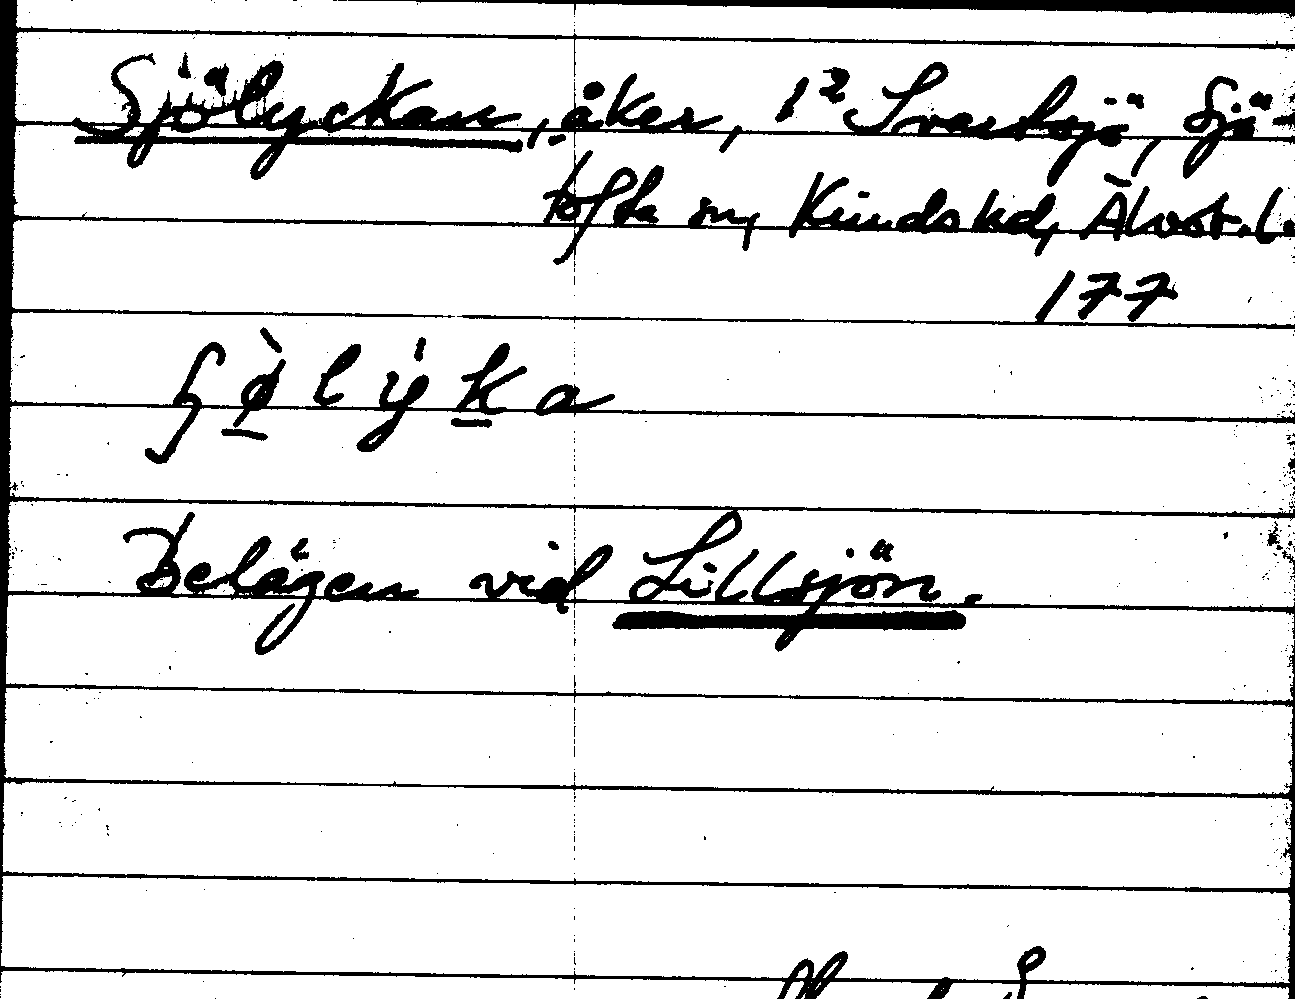 Sjölyckan, åker, 1² Svartsjö, Sjö-
tofta sn, Kinds hd, Älvsb. l.
177
Belägen vid Lillsjön.